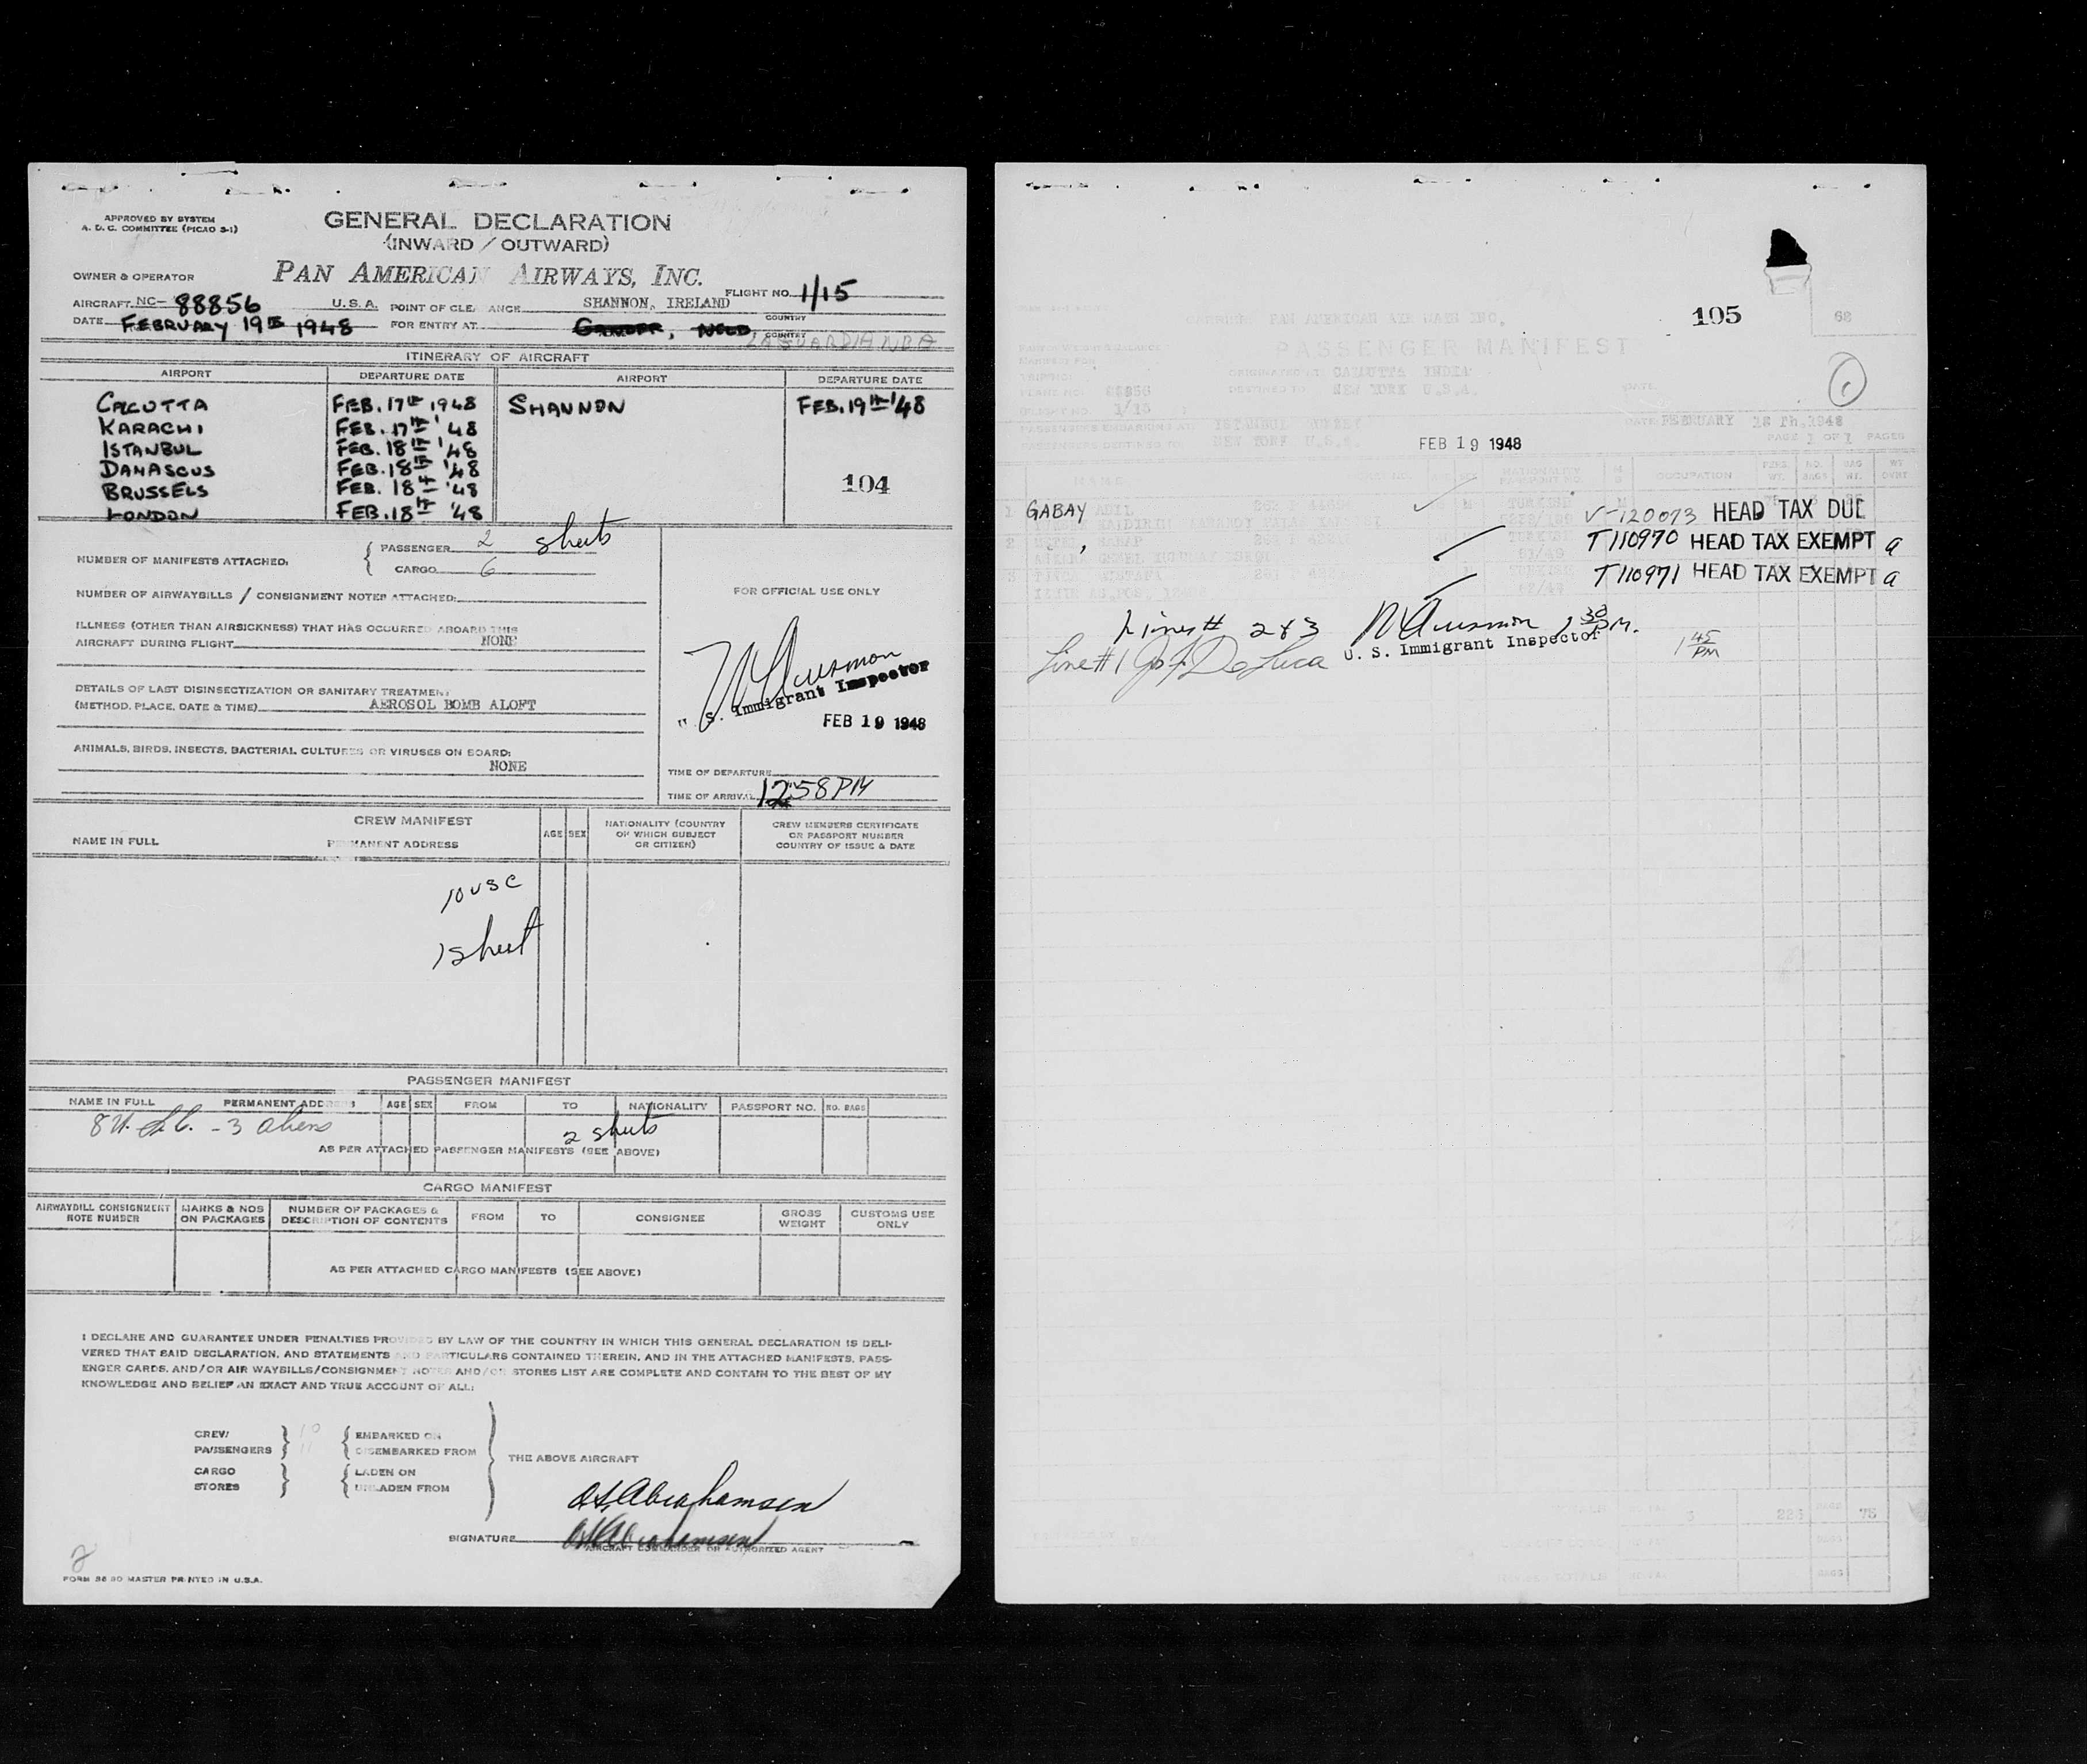 APPROVED BY SYSTEM
A. D. C. COMMITTEE (PICAO S-1)
GENERAL DECLARATION
(INWARD / OUTWARD)
OWNER & OPERATOR
PAN AMERICAN AIRWAYS, INC.
AIRCRAFT NC- 88856 U.S.A. POINT OF CLE ANCE SHANNON, IRELAND FLIGHT NO. 1/15
COUNTRY
DATE FEBRUARY 19th 1948 FOR ENTRY AT GANDER, NFLD
COUNTRY
ITINERARY OF AIRCRAFT
AIRPORT DEPARTURE DATE AIRPORT DEPARTURE DATE
CALCUTTA FEB. 17th 1948 SHANNON FEB. 19th '48
KARACHI FEB. 17th '48
ISTANBUL FEB. 18th '48
DAMASCUS FEB. 18th '48
BRUSSELS FEB. 18th '48
104
LONDON FEB. 18th '48
NUMBER OF MANIFESTS ATTACHED: PASSENGER 2 sheets
CARGO 6
NUMBER OF AIRWAYBILLS / CONSIGNMENT NOTES ATTACHED:
FOR OFFICIAL USE ONLY
ILLNESS (OTHER THAN AIRSICKNESS) THAT HAS OCCURRED ABOARD THIS
AIRCRAFT DURING FLIGHT NONE
DETAILS OF LAST DISINSECTIZATION OR SANITARY TREATMENT
(METHOD, PLACE, DATE & TIME) AEROSOL BOMB ALOFT
S. Immigrant Inspector
FEB 19 1948
ANIMALS, BIRDS, INSECTS, BACTERIAL CULTURES OR VIRUSES ON BOARD:
NONE
TIME OF DEPARTURE
TIME OF ARRIVAL 12 58 PM
CREW MANIFEST
NAME IN FULL PERMANENT ADDRESS AGE SEX NATIONALITY (COUNTRY OF WHICH SUBJECT OR CITIZEN) CREW MEMBERS CERTIFICATE OR PASSPORT NUMBER COUNTRY OF ISSUE & DATE
10 USC
1 sheet
PASSENGER MANIFEST
NAME IN FULL PERMANENT ADDRESS AGE SEX FROM TO NATIONALITY PASSPORT NO. NO. BAGS
8 U.S.C. - 3 aliens 2 sheets
AS PER ATTACHED PASSENGER MANIFESTS (SEE ABOVE)
CARGO MANIFEST
AIRWAYBILL CONSIGNMENT NOTE NUMBER MARKS & NOS ON PACKAGES NUMBER OF PACKAGES & DESCRIPTION OF CONTENTS FROM TO CONSIGNEE GROSS WEIGHT CUSTOMS USE ONLY
AS PER ATTACHED CARGO MANIFESTS (SEE ABOVE)
I DECLARE AND GUARANTEE UNDER PENALTIES PROVIDED BY LAW OF THE COUNTRY IN WHICH THIS GENERAL DECLARATION IS DELI-
VERED THAT SAID DECLARATION, AND STATEMENTS AND PARTICULARS CONTAINED THEREIN, AND IN THE ATTACHED MANIFESTS, PASS-
ENGER CARDS, AND/OR AIR WAYBILLS/CONSIGNMENT NOTES AND/OR STORES LIST ARE COMPLETE AND CONTAIN TO THE BEST OF MY
KNOWLEDGE AND BELIEF AN EXACT AND TRUE ACCOUNT OF ALL:
CREW 10 EMBARKED ON
PASSENGERS 11 DISEMBARKED FROM
THE ABOVE AIRCRAFT
CARGO LADEN ON
STORES UNLADEN FROM
SIGNATURE
AIRCRAFT COMMANDER OR AUTHORIZED AGENT
2
FORM 36 30 MASTER PRINTED IN U.S.A.
105
62
CARRIER PAN AMERICAN AIR WAYS INC.
PASSENGER MANIFEST
ORIGINATED AT CALCUTTA INDIA
88856 DESTINED TO NEW YORK U.S.A. DATE
FLIGHT NO. 1/15
PASSENGERS EMBARKING AT ISTANBUL TURKEY DATE FEBRUARY 18 Th, 1948
PASSENGERS DESTINED TO NEW YORK U.S.A. FEB 19 1948 PAGE 1 OF 1 PAGES
NAME NATIONALITY OCCUPATION
1 GABAY ADIL V-120073 HEAD TAX DUE
2 T110970 HEAD TAX EXEMPT a
3 T110971 HEAD TAX EXEMPT a
Lines # 2 & 3 1 30 PM.
U. S. Immigrant Inspector
Line #1 Jos. F. DeLuca 1 45 PM
225 75